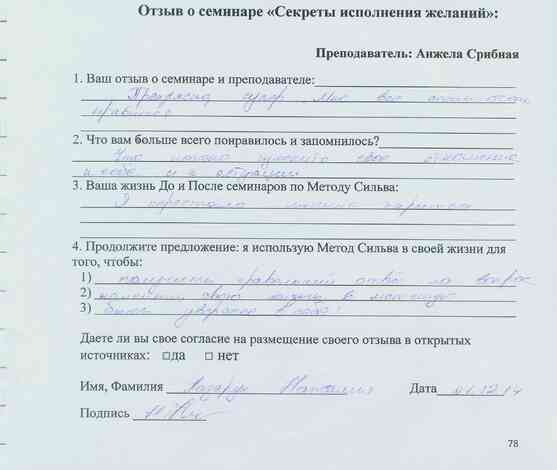 Отзыв о семинаре «Секреты исполнения желаний»:
Преподаватель: Анжела Срибная
1. Ваш отзыв о семинаре и преподавателе:
супер Мне все очень
нравится
2. Что вам больше всего понравилось и запомнилось?
Что можно свое отношение
к себе и к
3. Ваша жизнь До и После семинаров по Методу Сильва:
Я перестала
4. Продолжите предложение: я использую Метод Сильва в своей жизни для
того, чтобы:
1) правильный ответ на вопрос
2) свою жизнь к
3) быть уверенее в себе!
Даете ли вы свое согласие на размещение своего отзыва в открытых
источниках: □да □ нет
Имя, Фамилия Наталия Дата 01.12.14
Подпись
78